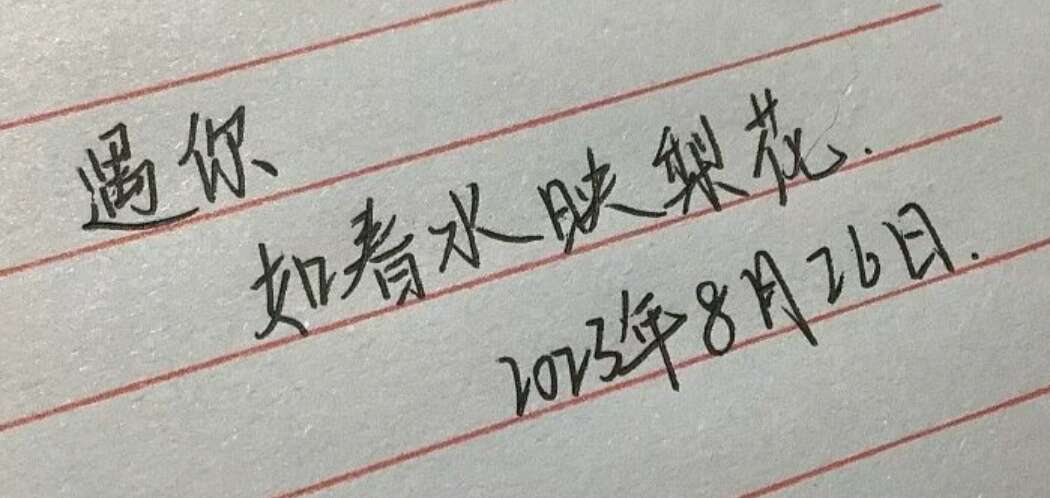 遇你
如春水映梨花.
2023年8月26日.